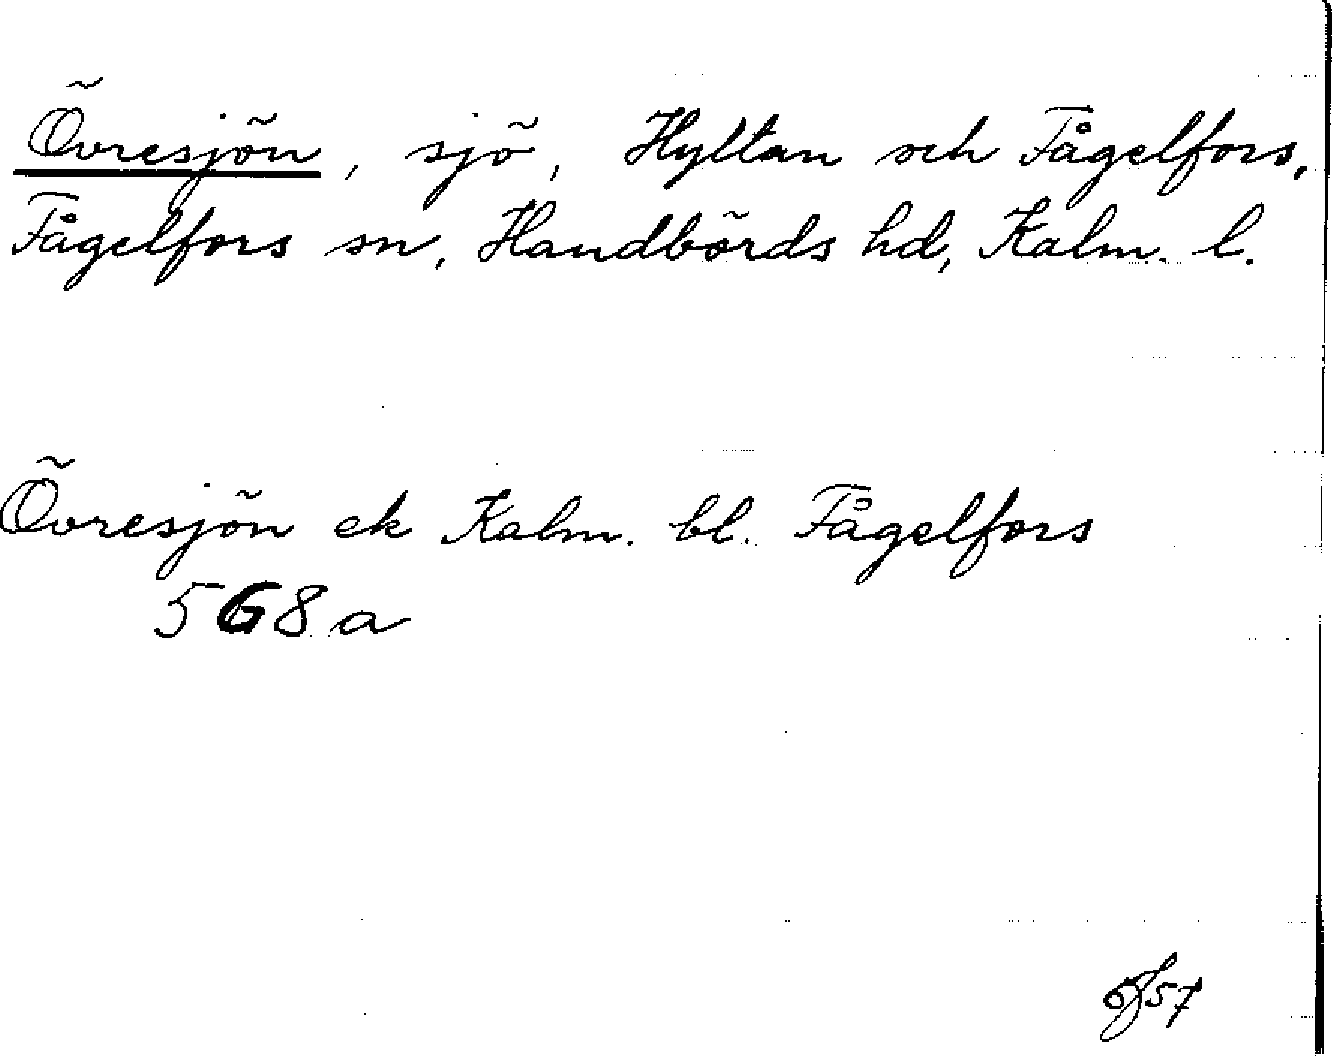 Övresjön, sjö, Hyltan och Fågelfors,
Fågelfors sn, Handbörds hd, Kalm. l.
Övresjön ek Kalm. bl. Fågelfors
5G8a